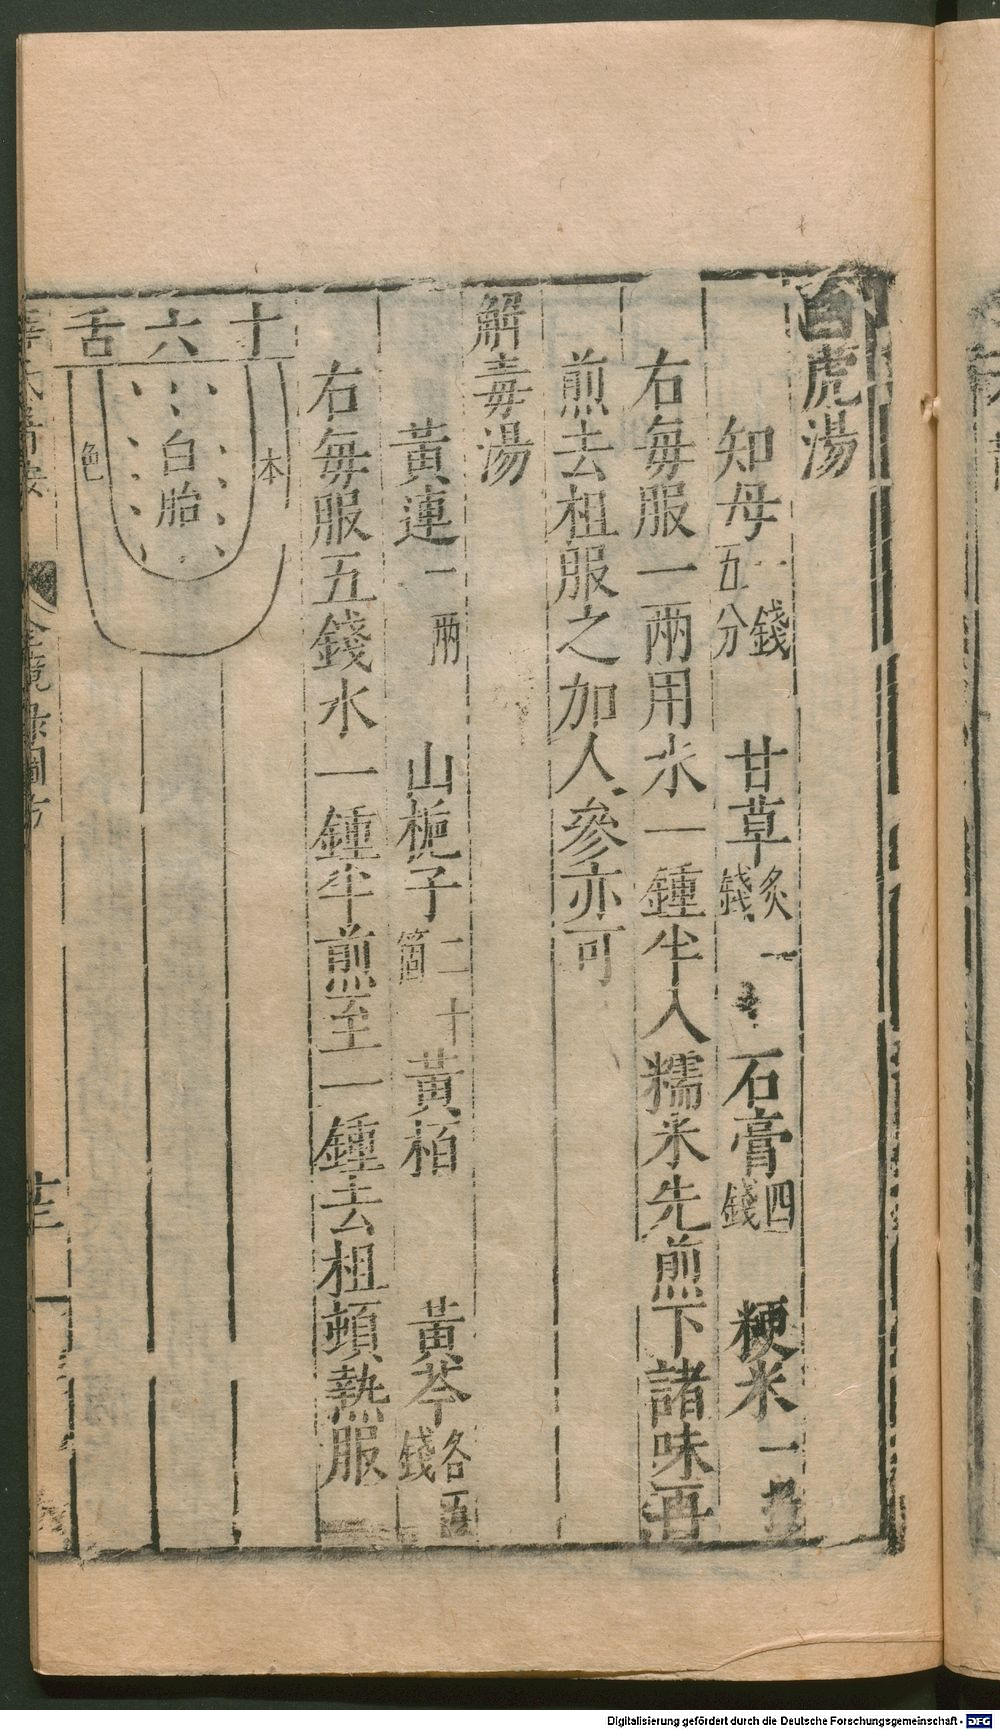 白虎湯
知母一錢五分 甘草炙一錢 石膏四錢 粳米一
右每服一兩用水一鍾半入糯米先煎下諸味再
煎去柤服之加人參亦可
解毒湯
黃連一兩 山梔子二十箇 黃栢 黃芩各五錢
右每服五錢水一鍾半煎至一鍾去柤頓熱服
十六舌
本
白胎
色
金鏡錄圖方
廿三
Digitalisierung gefördert durch die Deutsche Forschungsgemeinschaft - DFG